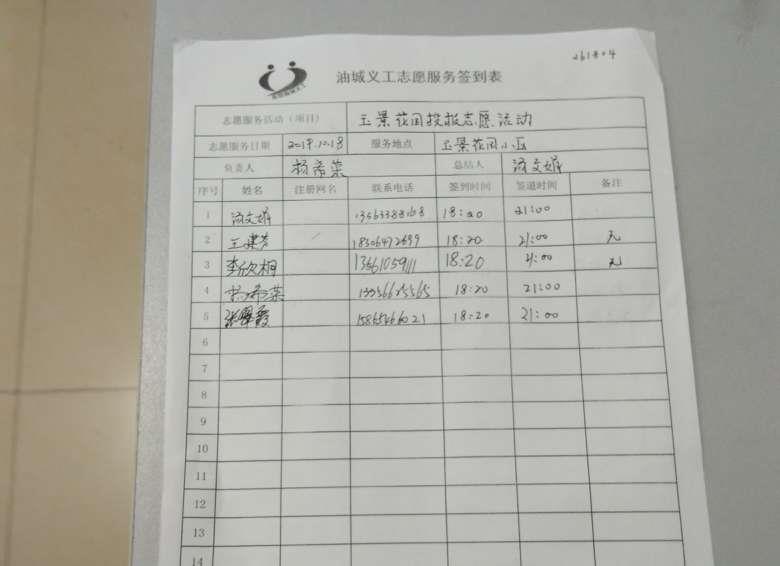 油城义工志愿服务签到表
志愿服务活动（项目） 玉景花园投报志愿活动
志愿服务日期 2019.10.18 服务地点 玉景花园小区
负责人 杨希荣 总结人 汤文娟
序号 姓名 注册网名 联系电话 签到时间 签退时间 备注
1 汤文娟 18:20 21:00
2 18:20 21:00 无
3 李欣桐 18:20 21:00 无
4 杨希荣 18:20 21:00
5 18:20 21:00
6
7
8
9
10
11
12
13
14